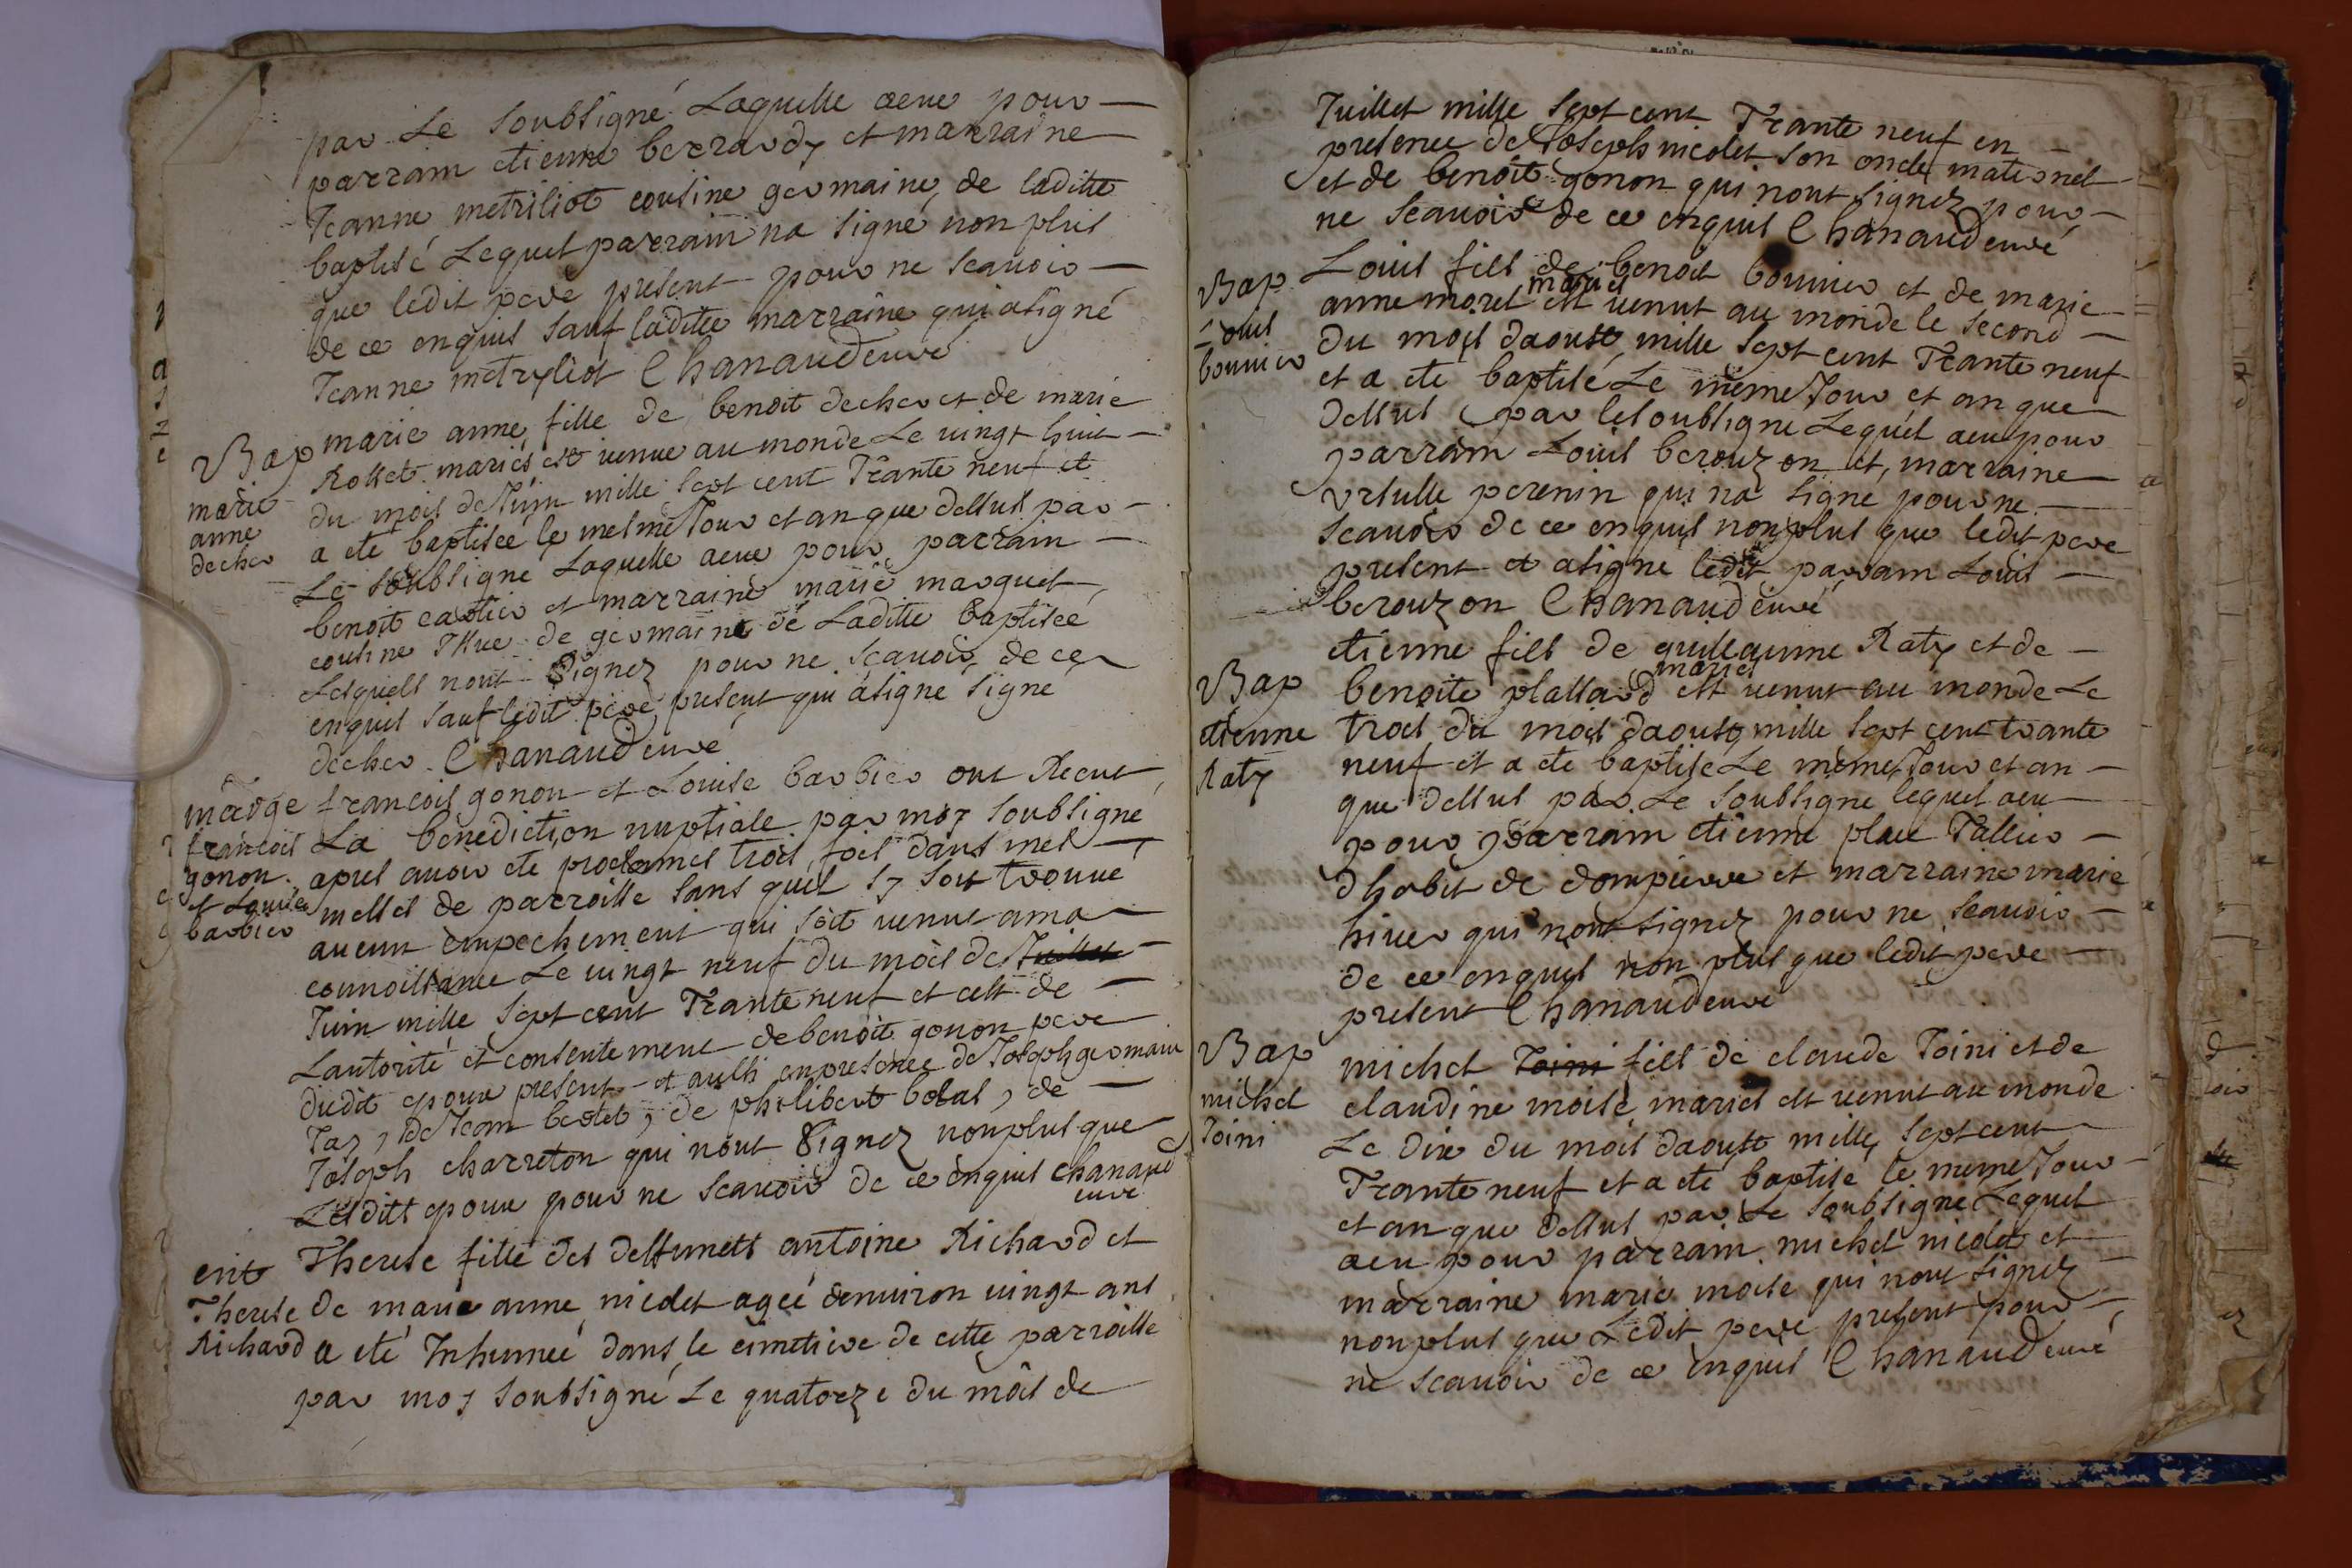 par Le soubsigné Laquelle aeue pour
parrain etienne berrardy et marraine
Jeanne metriliot cousine germaine de laditte
baptisé Lequel parrain na signé non plus
que ledit pere present pour ne scauoir
de ce enquis sauf laditte marraine qui asigné
Jeanne metryliot Chanaud curé
Bap
marie
anne
decher
marie anne fille de benoit decher et de marie
Rollet mariés est venue au monde Le vingt huit
du mois de Juin mille sept cent Trante neuf et
a ete baptiseé le mesme Jour et an que dessus par
Le soubsigné Laquelle aeue pour parrain
benoit cartier et marraine marie marquet
cousine Issue de germaine de Laditte baptiseé
Lesquels nont signez pour ne scauoir de ce
enquis sauf ledit pere present qui a signé signé
decher Chanaud curé
marge
francois
gonon
et Louise
barbier
francois gonon et Louise barbier ont Receut
La benediction nuptiale par moy soubsigné
apres auoir ete proclames trois fois dans mes
messes de parroisse sans quil sy soit trouué
aucun empechement qui soit venut ama
connoissance Le vingt neuf du mois de Juillet
Juin mille sept cent Trante neuf et cest de
Lautorité et consentement de benoit gonon pere
dudit epoux present et aussi enpresence de Joseph germain
Jay, de Jean bertet, de philibert bolas, de
Joseph charreton qui nont signez nonplus que
Lesditts epoux pour ne scauoir de ce enquis chanaud
curé
ent
Therese
Richard
Therese fille des deffunets antoine Richard et
de marie anne nicolet ageé denuiron vingt ans
a eté Inhumeé dans le cimetiere de cette parroisse
par moy soubsigné Le quatorze du mois de
Juillet mille sept cent Trante neuf en
presence de Joseph nicolet son oncle maternel
et de benoit gonon qui nont signez pour
ne scauoir de ce enquis Chanaud curé
Bap
Louis
bouuier
Louis fils de benoit bouuier et de marie
anne morel mariés est venut au monde le second
du mois daoust mille sept cent Trante neuf
et a ete baptisé Le meme Jour et an que
dessus par lesoubsigné Lequel aeu pour
parrain Louis berouzon et marraine
ursulle perenin qui na signé pour ne
scauoir de ce enquis nonplus que ledit pere
present et asigné ledit parrain Louis
berouzon Chanaud curé
Bap
etienne
Raty
etienne fils de guilleaume Raty et de
benoite plassard mariés est venut au monde Le
trois du mois daoust mille sept cent trante
neuf et a ete baptisé Le meme Jour et an
que dessus par Le soubsigné lequel aeu
pour parrain etienne place Tallier
dhabit de dompierre et marraine marie
hiuer qui nont signez pour ne scauoir
de ce enquis non plus que ledit pere
present Chanaud curé
Bap
michel
Toini
michel Toini fils de claude Toini et de
claudine moise mariés est venut au monde
Le dix du mois daoust mille sept cent
Trante neuf et a eté baptisé le meme Jour
et an que dessus par Le soubsigné Lequel
aeu pour parrain michel nicolet et
marraine marie moise qui nont signez
nonplus que Ledit pere present pour
ne scauoir de ce enquis Chanaud curé